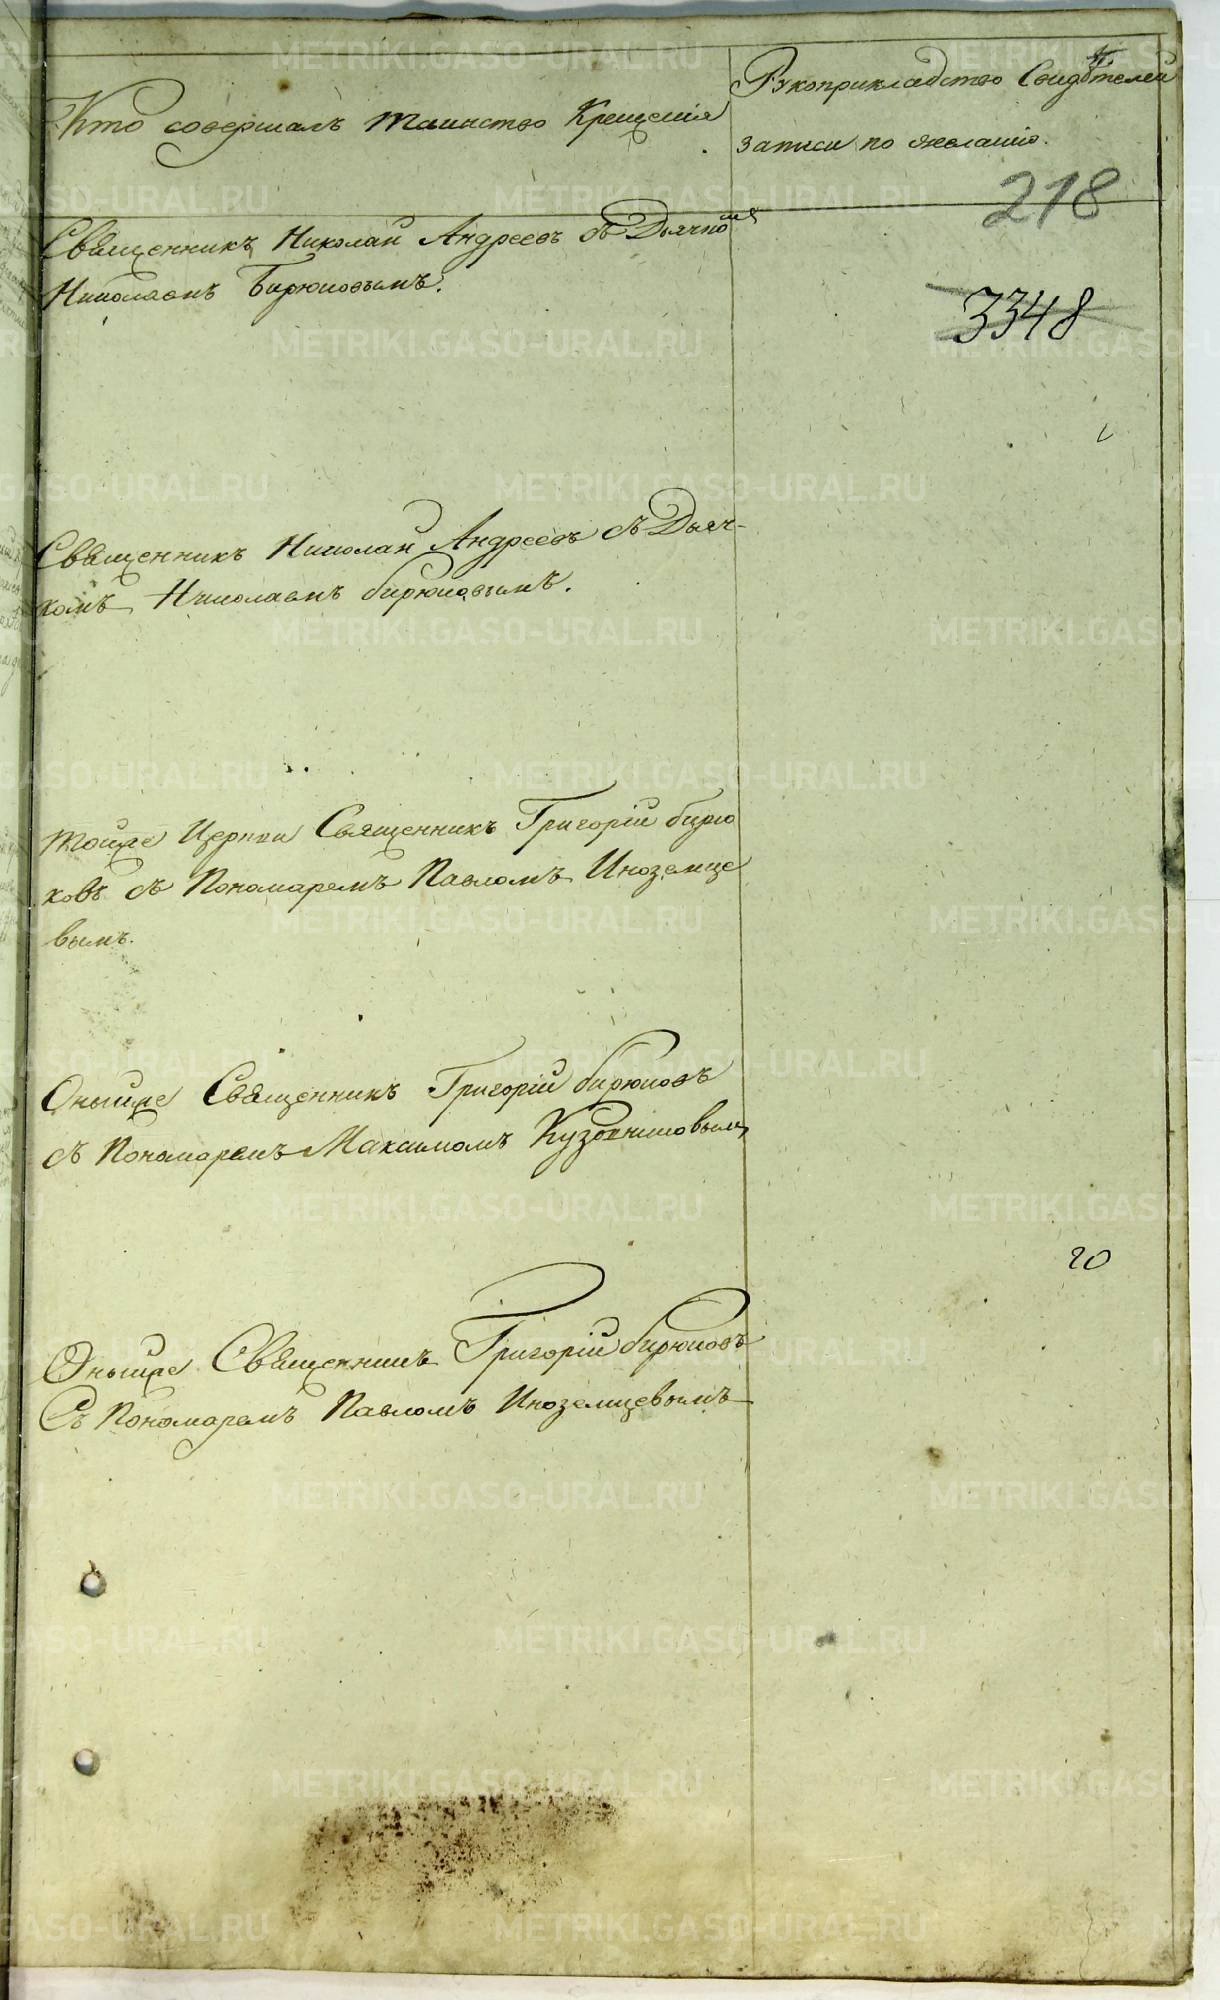 Кто совершалъ таинство Крещенія
Рукоприкладство Свидѣтелей
записи по желанію.
218
Священникъ Николай Андреевъ съ Дьячко
Николаемъ Бирюковымъ.
3348
Священникъ Николай Андреевъ съ Дьяч-
комъ Николаемъ бирюковымъ.
тойже Церкви Священникъ Григорій бирю
ковъ съ Пономаремъ Павломъ Иноземце
вымъ.
Оныйже Священникъ Григорій бирюковъ
съ Пономаремъ Максимомъ Кузовниковым
20
Оныйже Священникъ Григорій бирюковъ
Съ Пономаремъ Павломъ Иноземцевымъ
METRIKI.GASO-URAL.RU